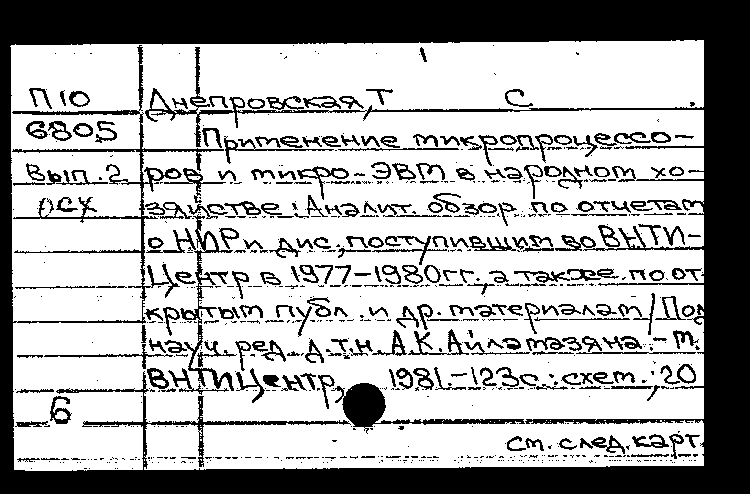 П10 Днепровская, Т С.
6805 Применение микропроцессо-
Вып.2 ров и микро-ЭВМ в народном хо-
осх зяйстве: Аналит. обзор по отчетам
о НИР и дис., поступившим во ВНТИ-
Центр в 1977-1980гг., а также по от-
крытым публ. и др. материалам / Под
науч. ред. д.т.н. А.К. Айламазяна. - М.:
ВНТИЦентр, 1981. - 123с.: схем.; 20
6
см. след. карт.